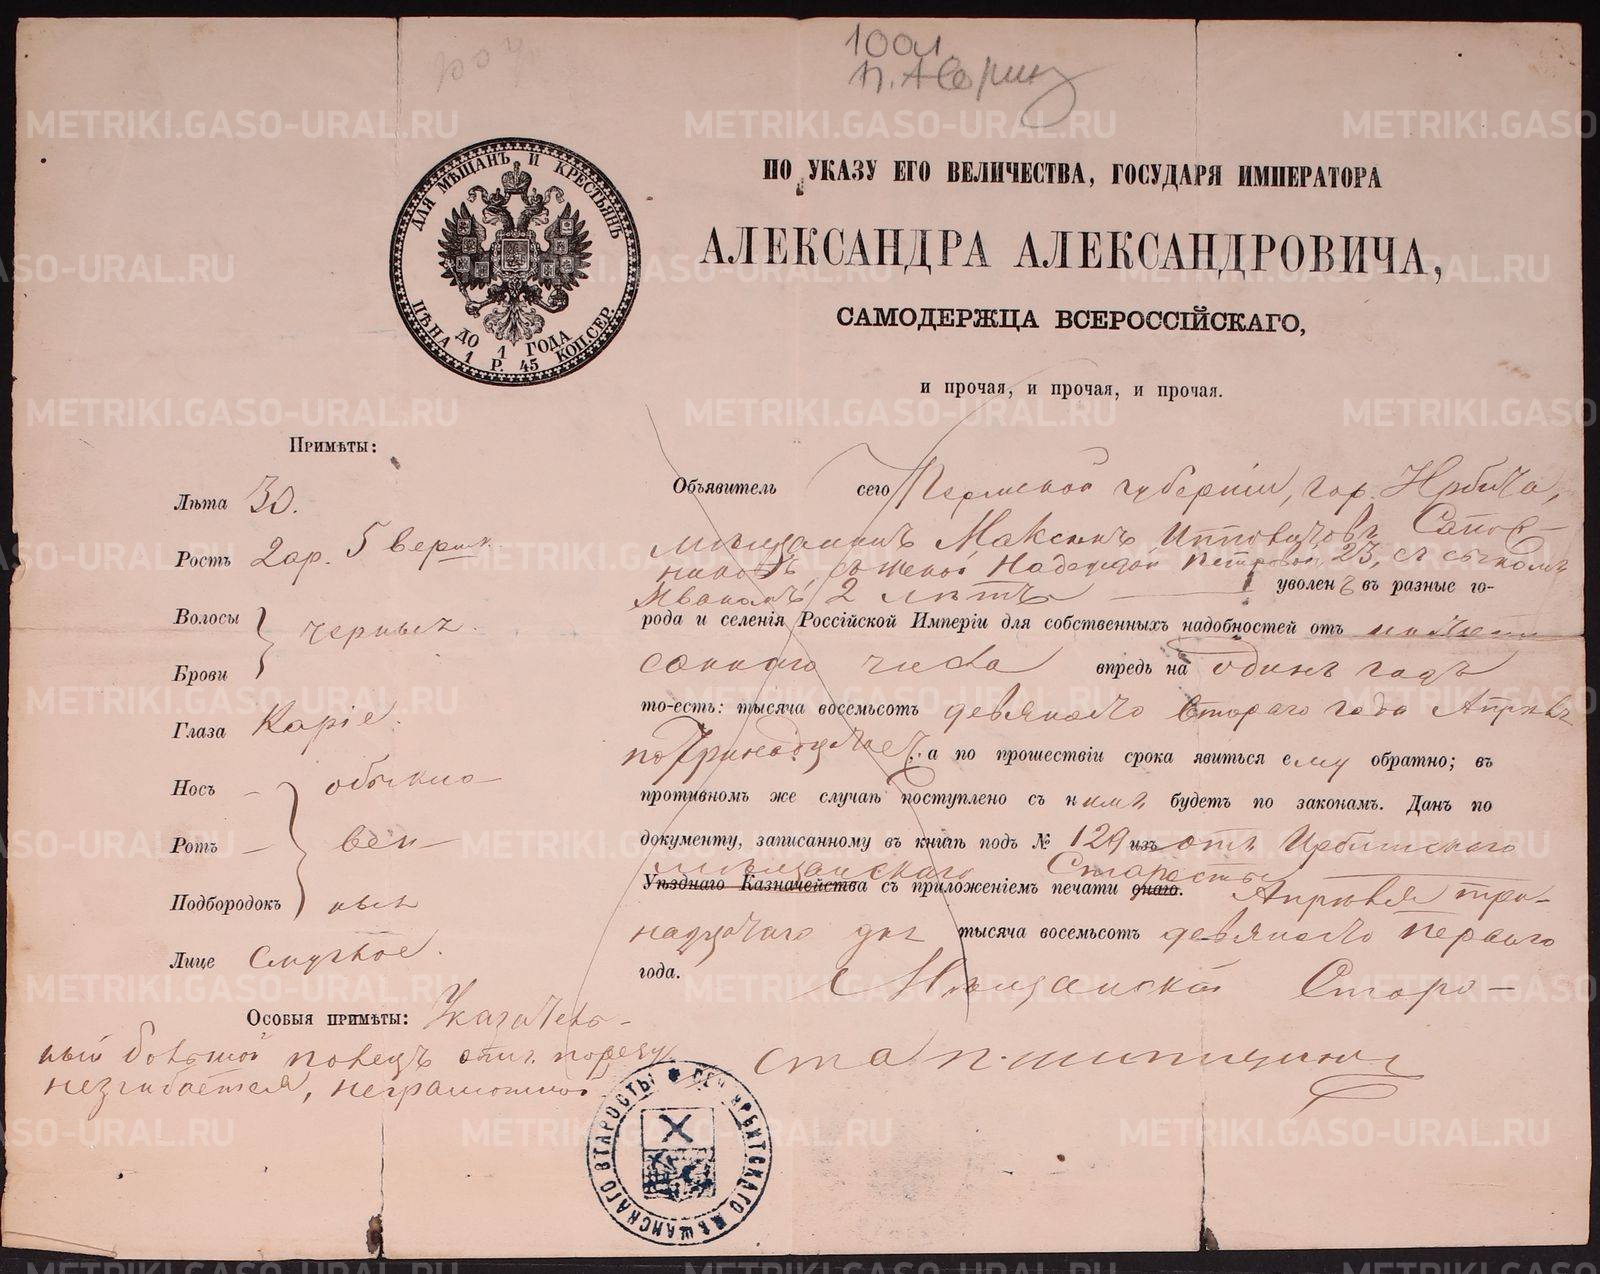 1001
METRIKI.GASO-URAL.RU
ДЛЯ МѢЩАНЪ И КРЕСТЬЯНЪ
ДО 1 ГОДА
ЦѢНА 1 Р. 45 КОП. СЕР.
ПО УКАЗУ ЕГО ВЕЛИЧЕСТВА, ГОСУДАРЯ ИМПЕРАТОРА
АЛЕКСАНДРА АЛЕКСАНДРОВИЧА,
САМОДЕРЖЦА ВСЕРОССІЙСКАГО,
и прочая, и прочая, и прочая.
Примѣты:
Лѣта 30.
Ростъ 2 ар. 5 верш.
Волосы
черныя.
Брови
Глаза Каріе.
Носъ – обыкно-
Ротъ – вен-
Подбородокъ ныя
Лице Смуглое.
Особыя примѣты: Указатель-
ный большой палецъ отъ порезу
незгибается, неграмотной
Объявитель сего Пермской губерніи, гор. Ирбита,
мѣщанинъ Максимъ Сапож-
никовъ, съ женой Надеждой Петровой 23, съ сыномъ
Иваномъ 2 лѣтъ уволенъ въ разные го-
рода и селенія Россійской Имперіи для собственныхъ надобностей отъ нижепи-
саннаго числа впредь на одинъ годъ
то-есть: тысяча восемьсотъ девяносто втораго года Апрѣля
по тринадцатое, а по прошествіи срока явиться ему обратно; въ
противномъ же случаѣ поступлено съ нимъ будетъ по законамъ. Данъ по
документу, записанному въ книгѣ подъ № 129 изъ отъ Ирбитскаго
мѣщанскаго Старосты
Уѣзднаго Казначейства съ приложеніемъ печати онаго. Апрѣля три-
надцатаго дня тысяча восемьсотъ девяносто перваго
года. Мѣщанскій Старо-
ста П. Шипицинъ
ПЕЧ. ИРБИТСКАГО МѢЩАНСКАГО СТАРОСТЫ